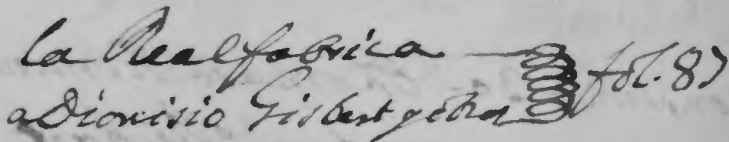 la Real fabrica
a Dionisio Gisbert y otros fol. 87